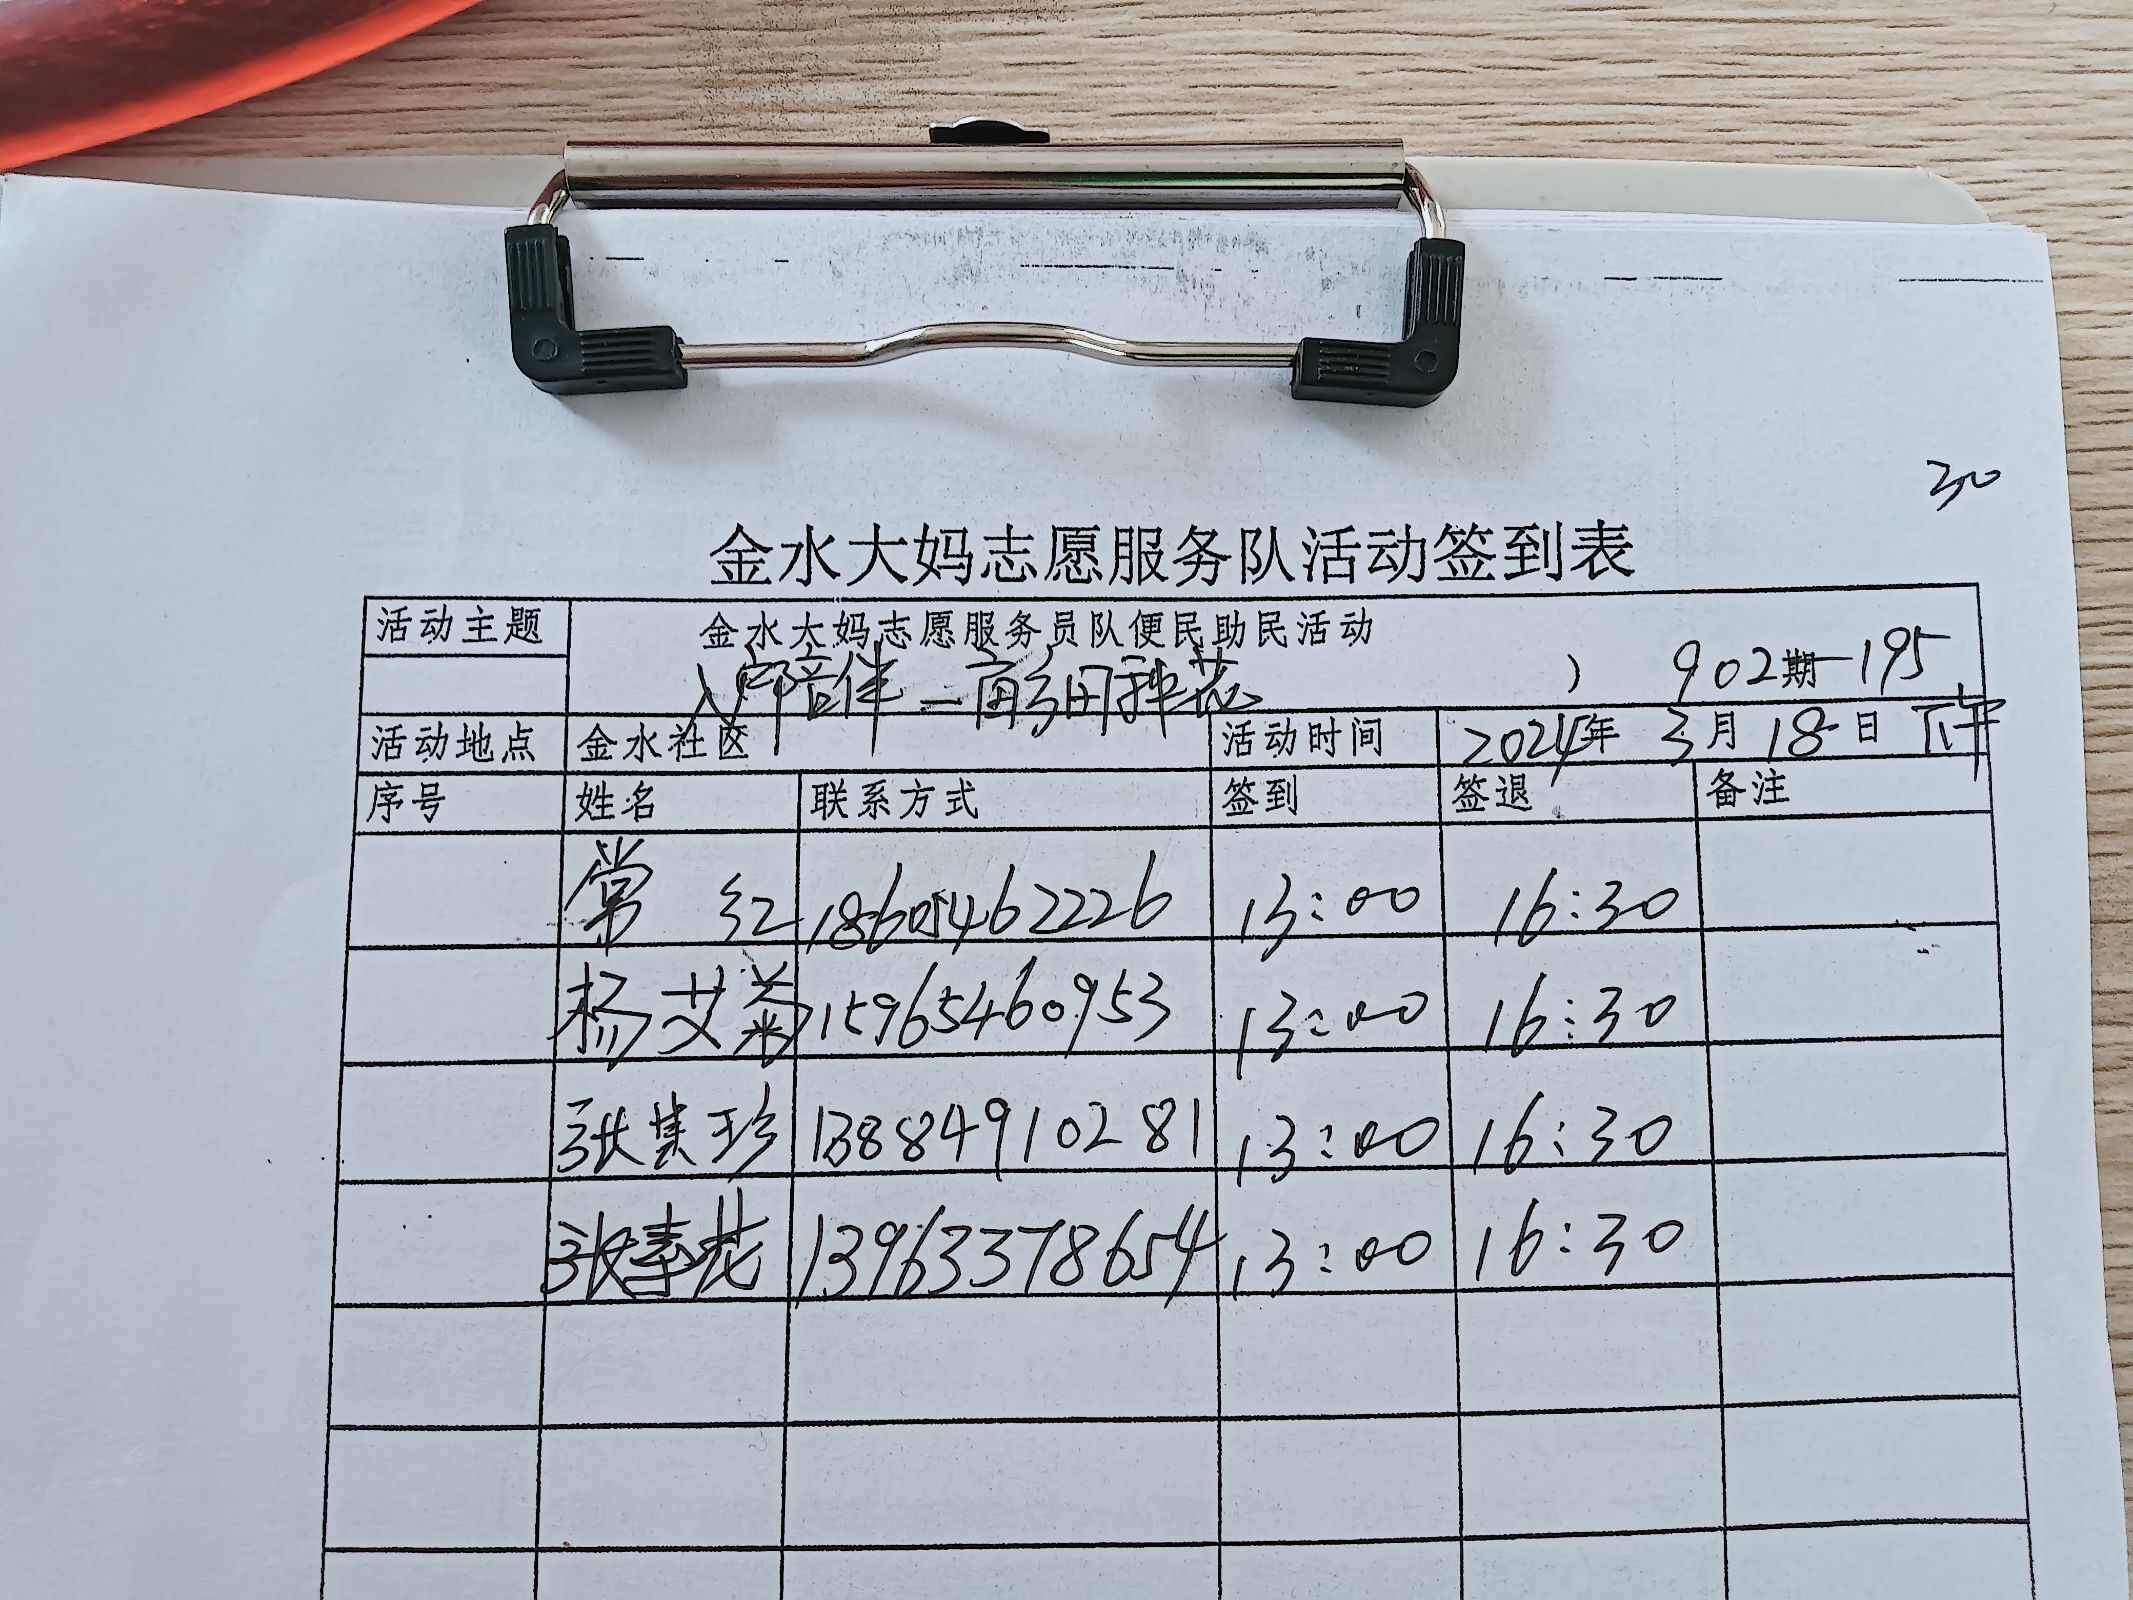 30
金水大妈志愿服务队活动签到表
活动主题 金水大妈志愿服务员队便民助民活动
入户陪伴 二亩多田种花 ) 902期-195
活动地点 金水社区 活动时间 2024年 3月 18日 下午
序号 姓名 联系方式 签到 签退 备注
常 红 18605462226 13:00 16:30
杨艾菊 15965460953 13:00 16:30
张其珍 13884910281 13:00 16:30
张春花 13963378654 13:00 16:30